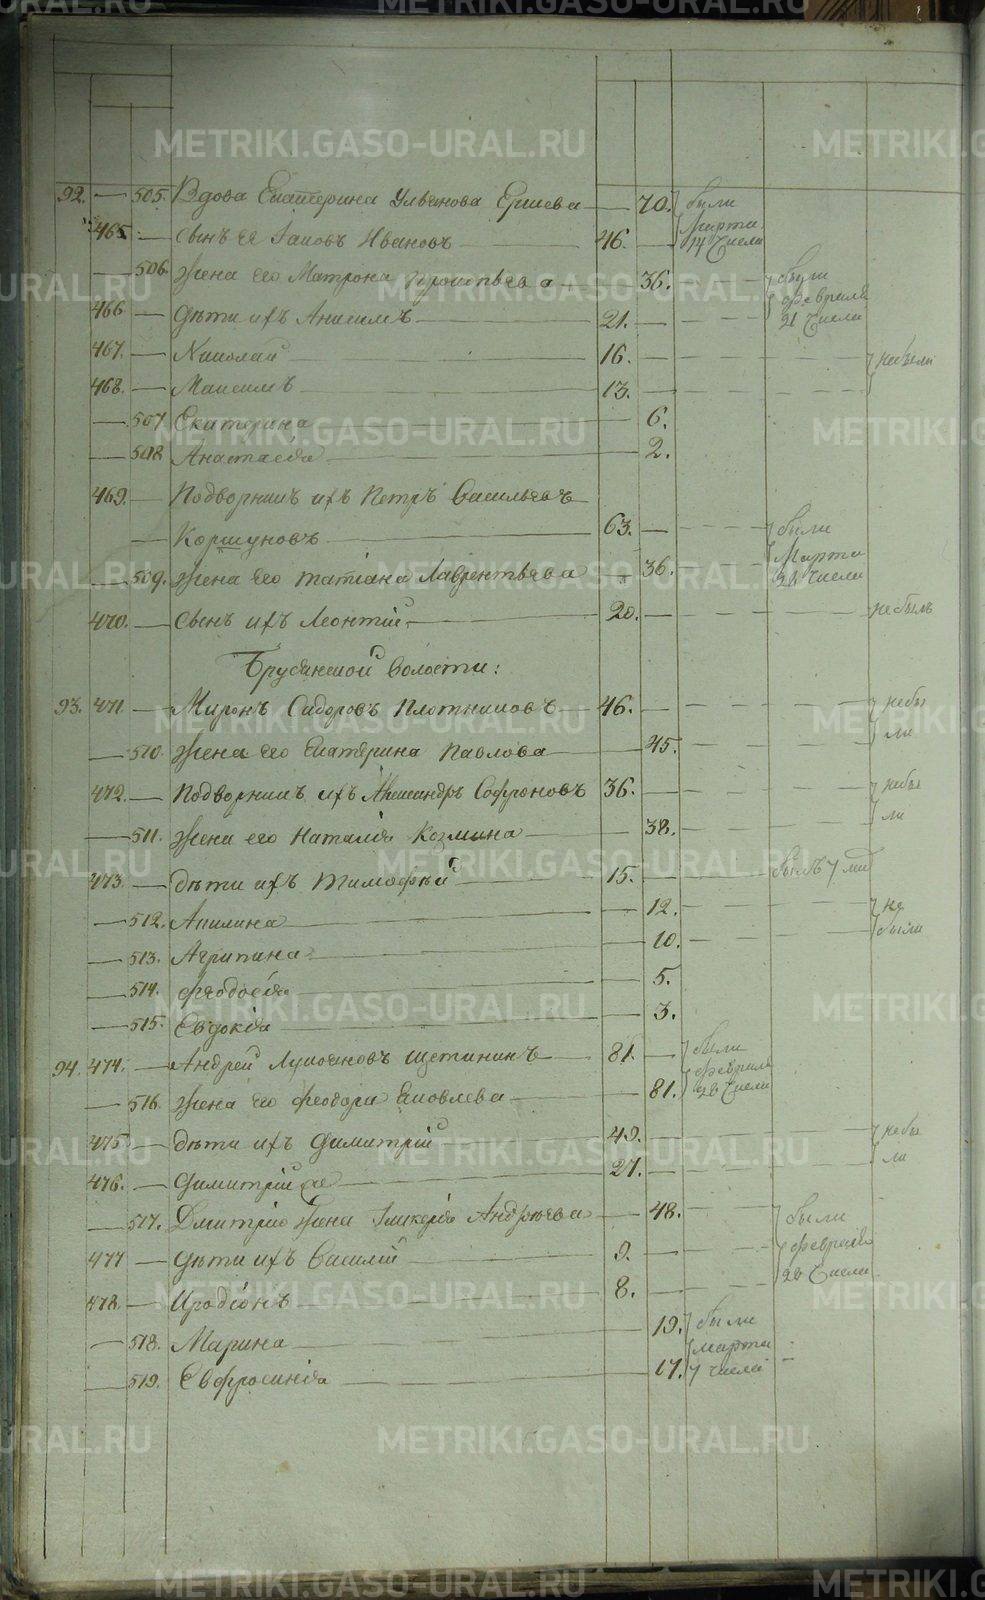 92. — 505. Вдова Екатерина Ульянова Ершева — 70. были
465 — сынъ ея Іаковъ Ивановъ — 46. — Марта 14 числа
— 506. жена его Матрона — 36. были февраля
466 — дѣти ихъ Анисимъ — 21. — 21 числа
467. — Николай — 16. — небыли
468. — Максимъ — 13. —
— 507 Екатерина — 6.
— 508 Анастасія — 2.
469. — Подворникъ ихъ Петръ Васильевъ
— Коршуновъ — 63. — были
— 509. жена его татіана Лаврентьева — 36. Марта 26 числа
470. — сынъ ихъ Леонтій — 20. — небылъ
Брусянской волости:
93. 471 — Миронъ Сидоровъ Плотниковъ — 46. — небы
— 510. жена его Екатерина Павлова — 45. ли
472. — Подворникъ ихъ Александръ Софроновъ 36. — небы
— 511. жена его Наталія Козмина — 38. ли
473 — дѣти ихъ тимофѣй — 15. — былъ 7
— 512. Акилина — 12. не
— 513. Агрипина — 10. были
— 514. феодосія — 5.
— 515. Евдокія — 3.
94. 474. — Андрей Щетининъ — 81. — были февраля
— 516. жена его феодора Яковлева — 81. 26 числа
475 — дѣти ихъ димитрій — 49. небы
476. — димитрій же — 27. — ли
— 517. Дмитріа жена Гликерія Андреева — 48. были
477 — дѣти ихъ Василій — 9. — февраля
478. — Иродіонъ — 8. — 26 числа
— 518. Марина — 19. были марта
— 519. Евфросинія — 17. 7 числа
METRIKI.GASO-URAL.RU